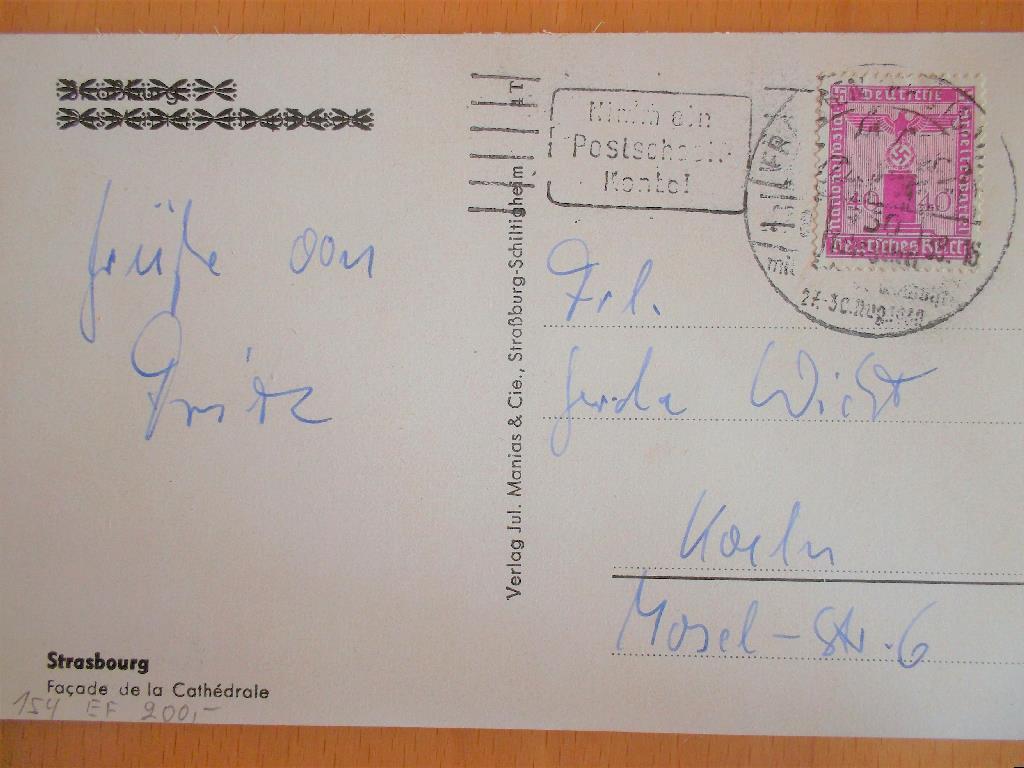 Straßburg
Nimm ein
Postscheck-
Konto!
Nationalsozialistische
Deutsche
Arbeiterpartei
40 40
Deutsches Reich
27.-30. Aug. 1940
Grüße von
Fritz
Verlag Jul. Manias & Cie., Straßburg-Schiltigheim
Frl.
Gerda Wicht
Koeln
Mosel-Str. 6
Strasbourg
Façade de la Cathédrale
154 EF 200,-